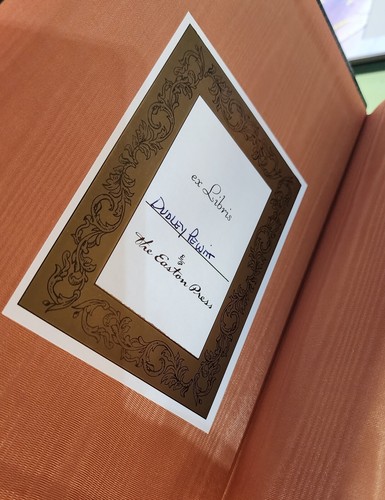 ex Libris
DUDLEY PEWITT
&
The Easton Press